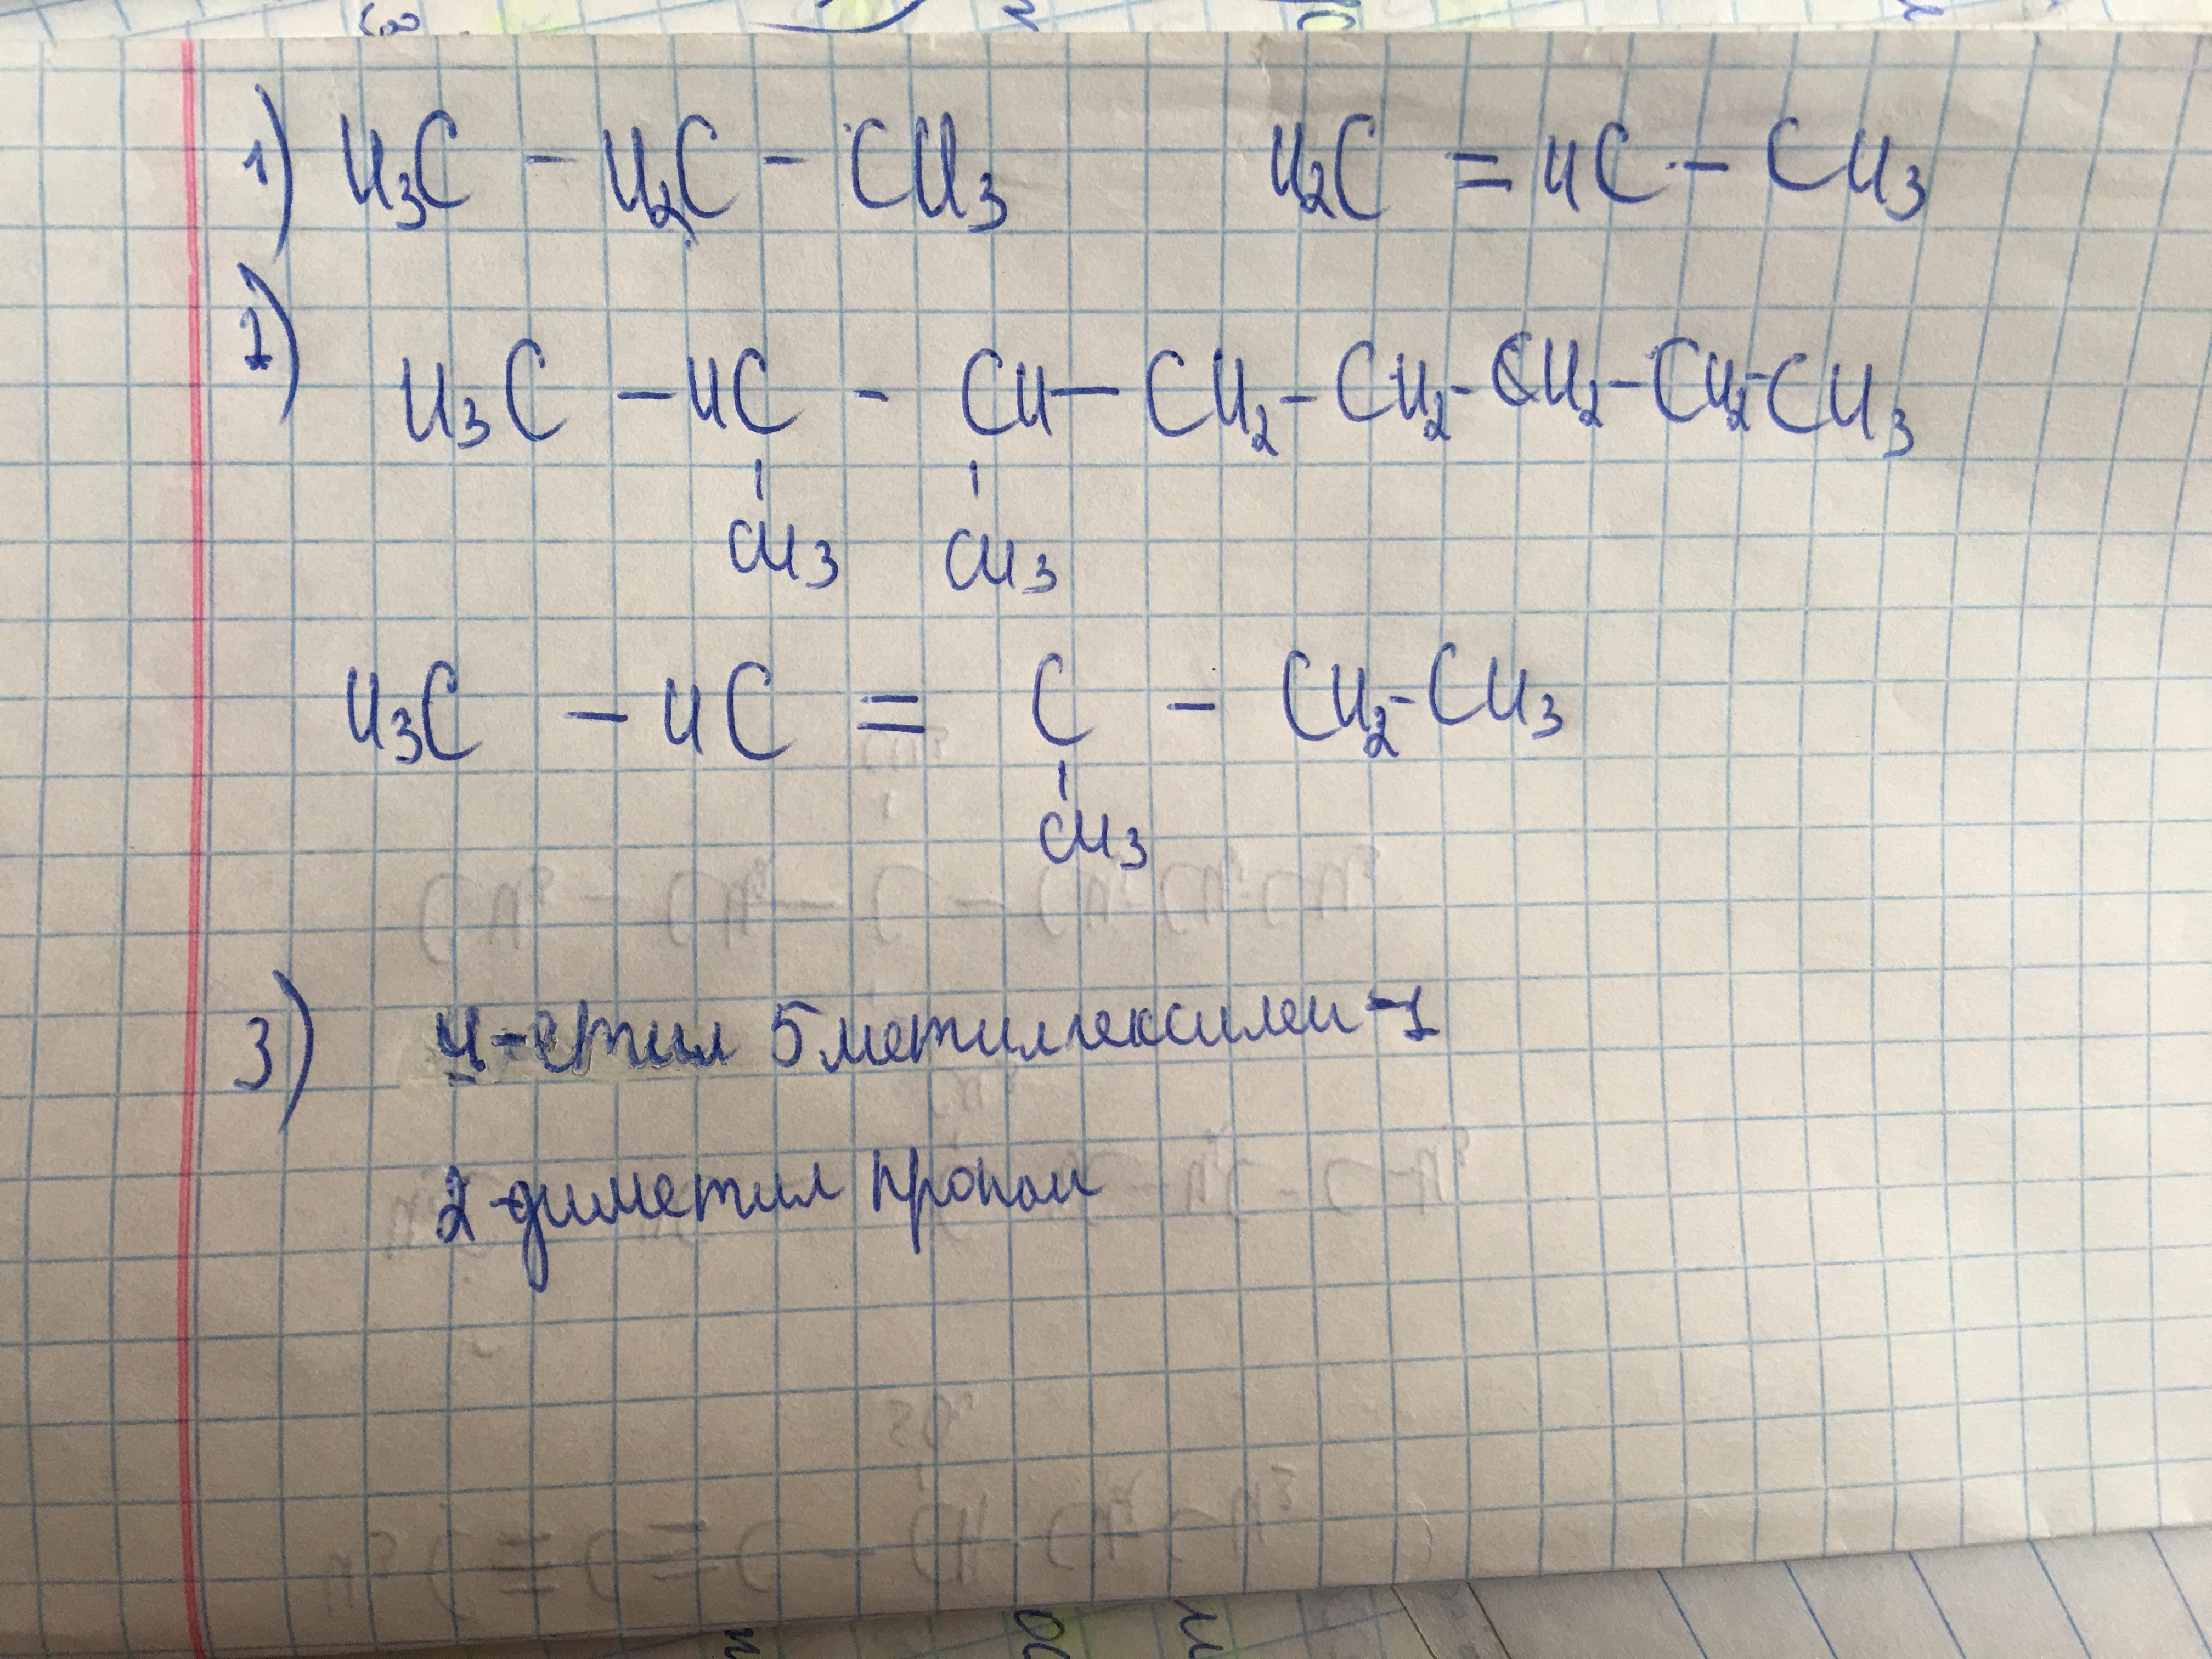 1) H₃C – H₂C – CH₃ H₂C = HC – CH₃
2)
H₃C – HC – CH – CH₂ – CH₂ – CH₂ – CH₂ – CH₃
CH₃ CH₃
H₃C – HC = C – CH₂ – CH₃
CH₃
3) 4-етил 5 метилгексилен-1
2-диметил пропан